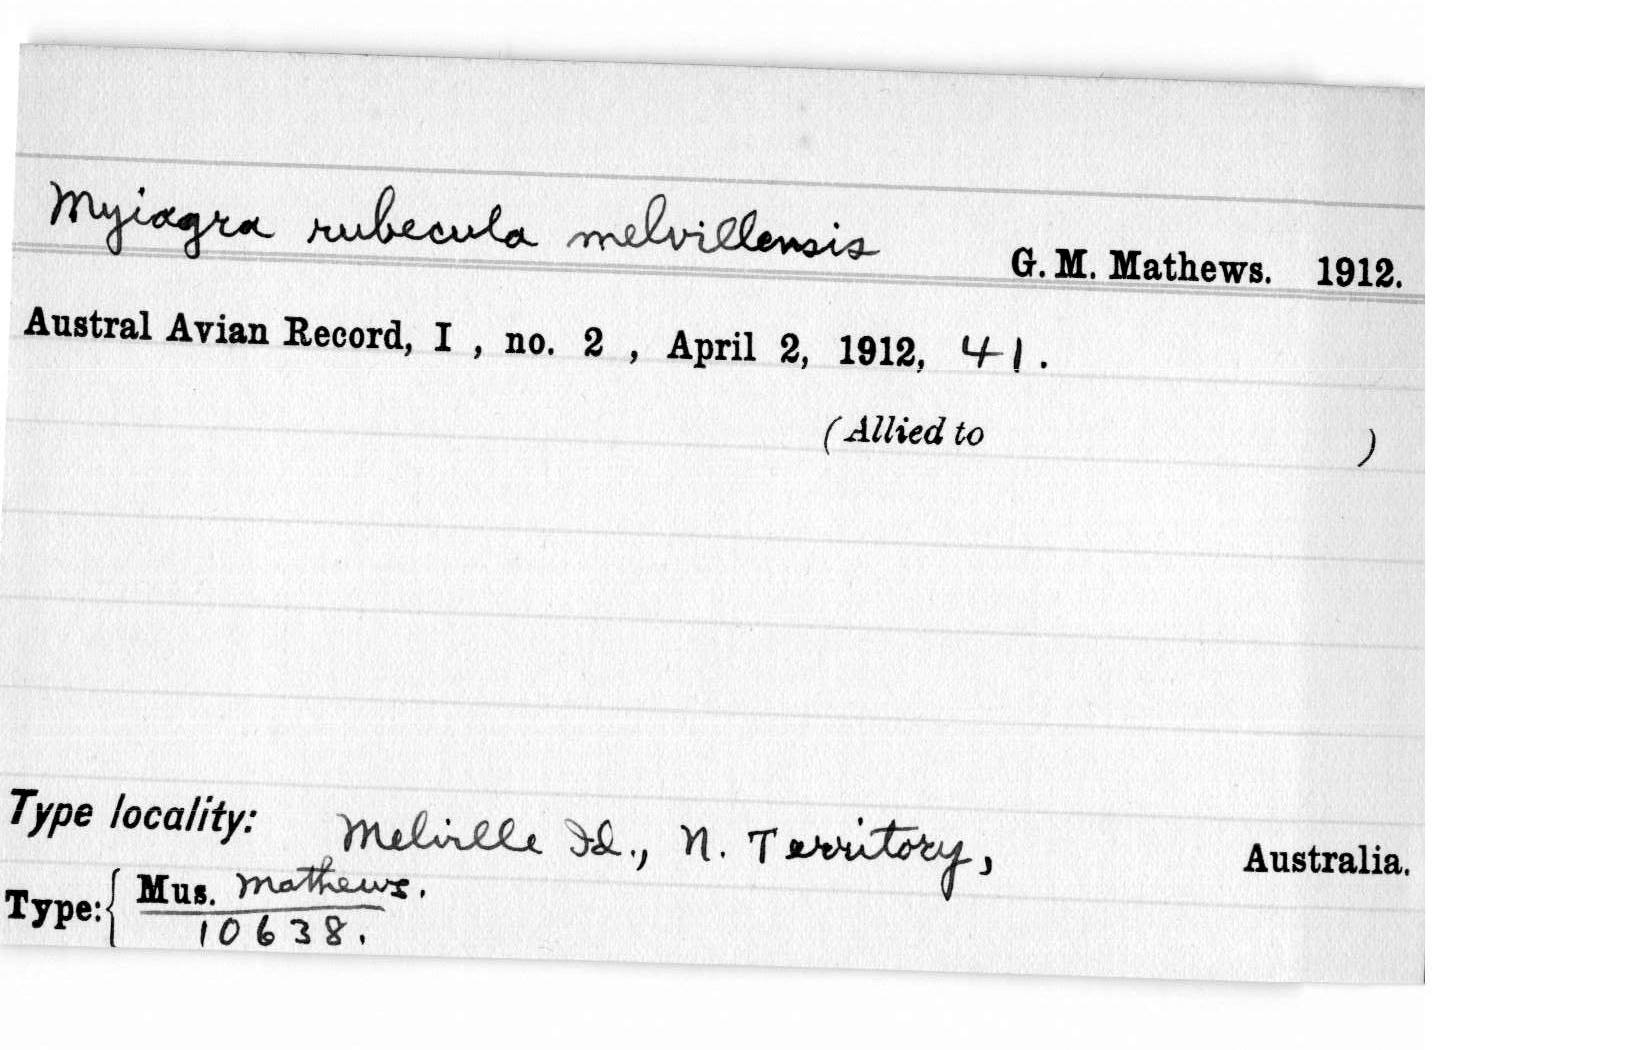 Myiagra rubecula melvillensis G. M. Mathews. 1912.
Austral Avian Record, I , no. 2 , April 2, 1912, 41.
(Allied to )
Type locality: Melville Id., N. Territory, Australia.
Type: { Mus. Mathews.
10638.